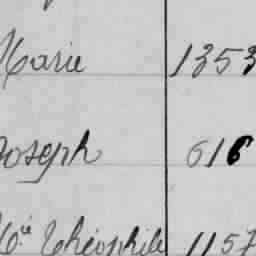 Marie 1353
Joseph 616
Mie Théophile 1157